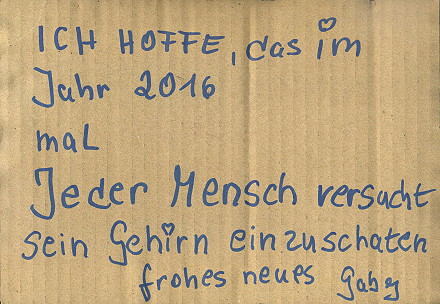 ICH HOFFE, das im
Jahr 2016
mal
Jeder Mensch versucht
sein Gehirn einzuschaten
frohes neues Gaby